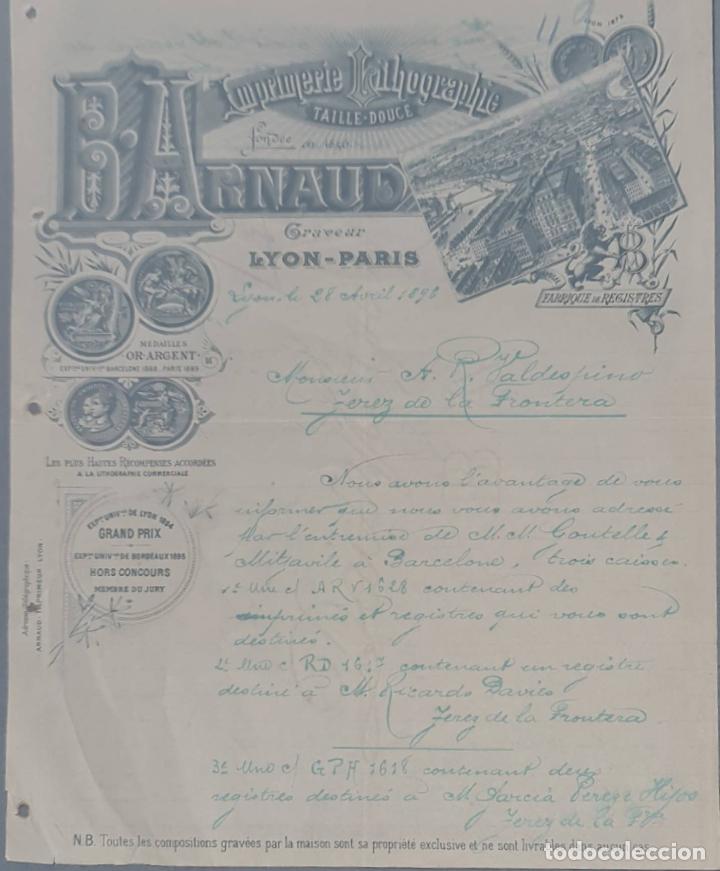 LYON 1872
Imprimerie Lithographie
TAILLE-DOUCE
fondée
B. ARNAUD
Graveur
LYON-PARIS
FABRIQUE DE REGISTRES
Lyon, le 28 Avril 1896
MÉDAILLES
OR-ARGENT
EXPon UNIVlle BARCELONE 1888, PARIS 1889
LES PLUS HAUTES RÉCOMPENSES ACCORDÉES
A LA LITHOGRAPHIE COMMERCIALE
EXPon UNIVlle DE LYON 1894
GRAND PRIX
EXPon UNIVlle DE BORDEAUX 1895
HORS CONCOURS
MEMBRE DU JURY
Adresse Télégraphique:
ARNAUD-IMPRIMEUR LYON.
Monsieur A. R. Valdespino
Jerez de la Frontera
Nous avons l'avantage de vous
informer que nous vous avons adressé
par l'entremise de M.M. Goutelle &
Mitjavile à Barcelone, trois caisses.
1º Une c/ ARV 1628 contenant des
imprimés et registres qui vous sont
destinés.
2º Une c/ RD 1617 contenant un registre
destiné à M. Ricardo Davies
Jerez de la Frontera.
3º Une c/ GPH 1618 contenant deux
registres destinés à M. Garcia Perez e Hijos
Jerez de la Fª
N.B. Toutes les compositions gravées par la maison sont sa propriété exclusive et ne sont livrables dans aucun cas
todocoleccion.net